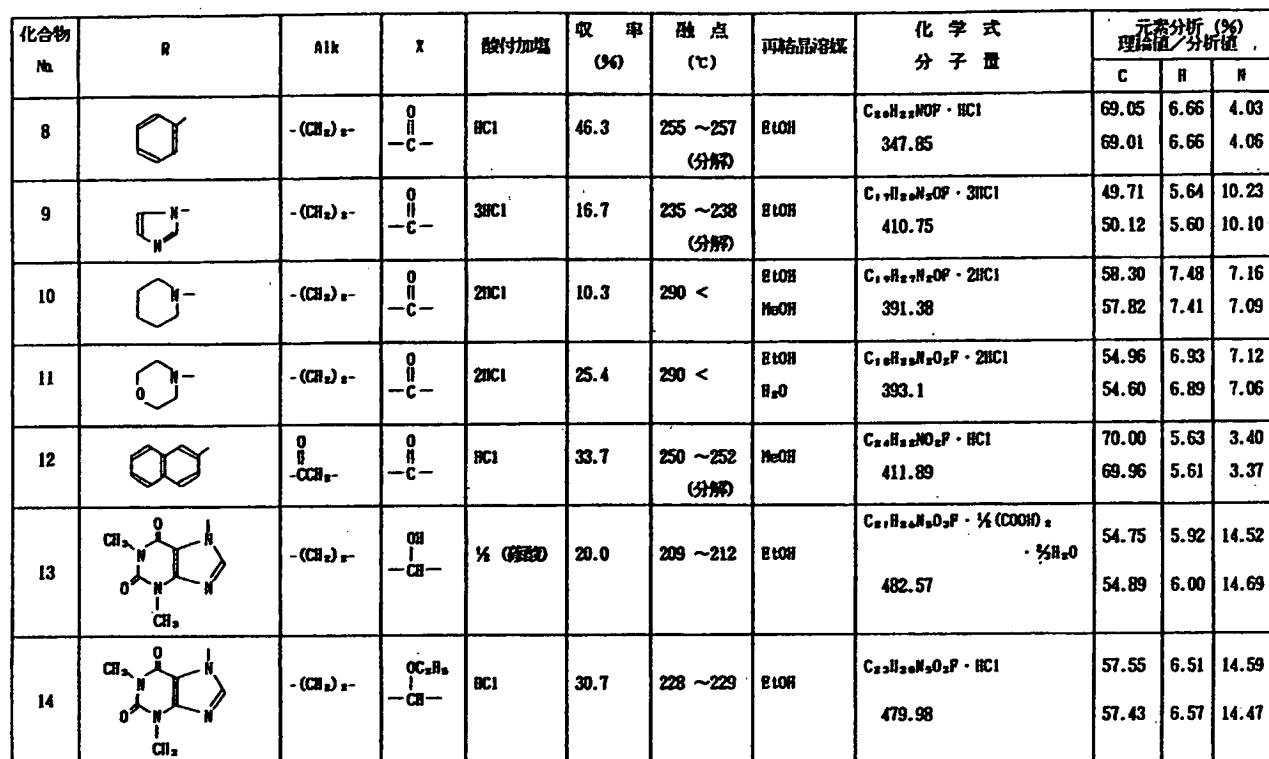 化合物 No. R Alk X 酸付加塩 収 率 (%) 融 点 (℃) 再結晶溶媒 化 学 式 分 子 量 元素分析 (%) 理論値/分析値
C H N
8 -(CH₂)₂- O ‖ —C— HCl 46.3 255 ~257 (分解) EtOH C₂₀H₂₂NOF・HCl 347.85 69.05 6.66 4.03
69.01 6.66 4.06
9 N— N -(CH₂)₂- O ‖ —C— 3HCl 16.7 235 ~238 (分解) EtOH C₁₇H₂₀N₃OF・3HCl 410.75 49.71 5.64 10.23
50.12 5.60 10.10
10 N— -(CH₂)₂- O ‖ —C— 2HCl 10.3 290 < EtOH MeOH C₁₉H₂₇N₂OF・2HCl 391.38 58.30 7.48 7.16
57.82 7.41 7.09
11 N— O -(CH₂)₂- O ‖ —C— 2HCl 25.4 290 < EtOH H₂O C₁₈H₂₅N₂O₂F・2HCl 393.1 54.96 6.93 7.12
54.60 6.89 7.06
12 O ‖ -CCH₂- O ‖ —C— HCl 33.7 250 ~252 (分解) MeOH C₂₄H₂₂NO₂F・HCl 411.89 70.00 5.63 3.40
69.96 5.61 3.37
13 CH₃ O N N O N N CH₃ -(CH₂)₂- OH —CH— 20.0 209 ~212 EtOH C₂₁H₂₄N₅O₃F・ (COOH)₂ ・ H₂O 482.57 54.75 5.92 14.52
54.89 6.00 14.69
14 CH₃ O N N O N N CH₃ -(CH₂)₂- OC₂H₅ —CH— HCl 30.7 228 ~229 EtOH C₂₃H₃₀N₅O₃F・HCl 479.98 57.55 6.51 14.59
57.43 6.57 14.47